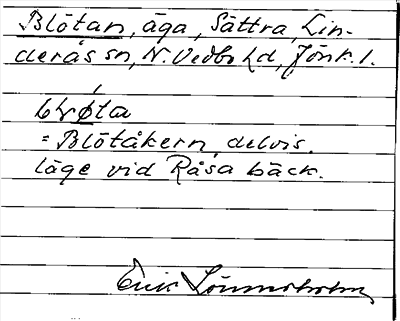 Blötan, äga, Sättra, Lin-
derås sn, N. Vedbo hd, Jönk. l.
= Blötåkern, delvis.
läge vid Råsa bäck.
Erik